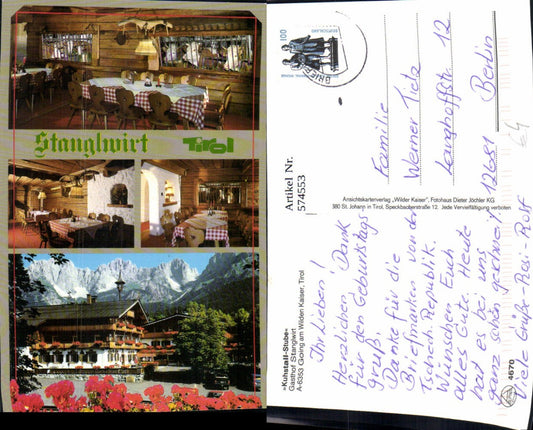 Stanglwirt Tirol
Artikel Nr.
574553
»Kuhstall-Stube«
Gasthof Stanglwirt
A-6353 Going am Wilden Kaiser, Tirol
Ansichtskartenverlag „Wilder Kaiser", Fotohaus Dieter Jöchler KG
380 St. Johann in Tirol, Speckbacherstraße 12. Jede Vervielfältigung verboten
4670
100
DEUTSCHLAND
BRIEF
Familie
Werner Tietz
Langhoffstr. 12
12681 Berlin
Ihr lieben!
Herzlichen Dank
für den Geburtstags
gruß.
Danke für die
Briefmarken von der
Tschech. Republik.
Wünschen Euch
alles Gute. Heute
hat es bei uns
ganz schön geschneit,
Viele Grüße Rosi-Rolf